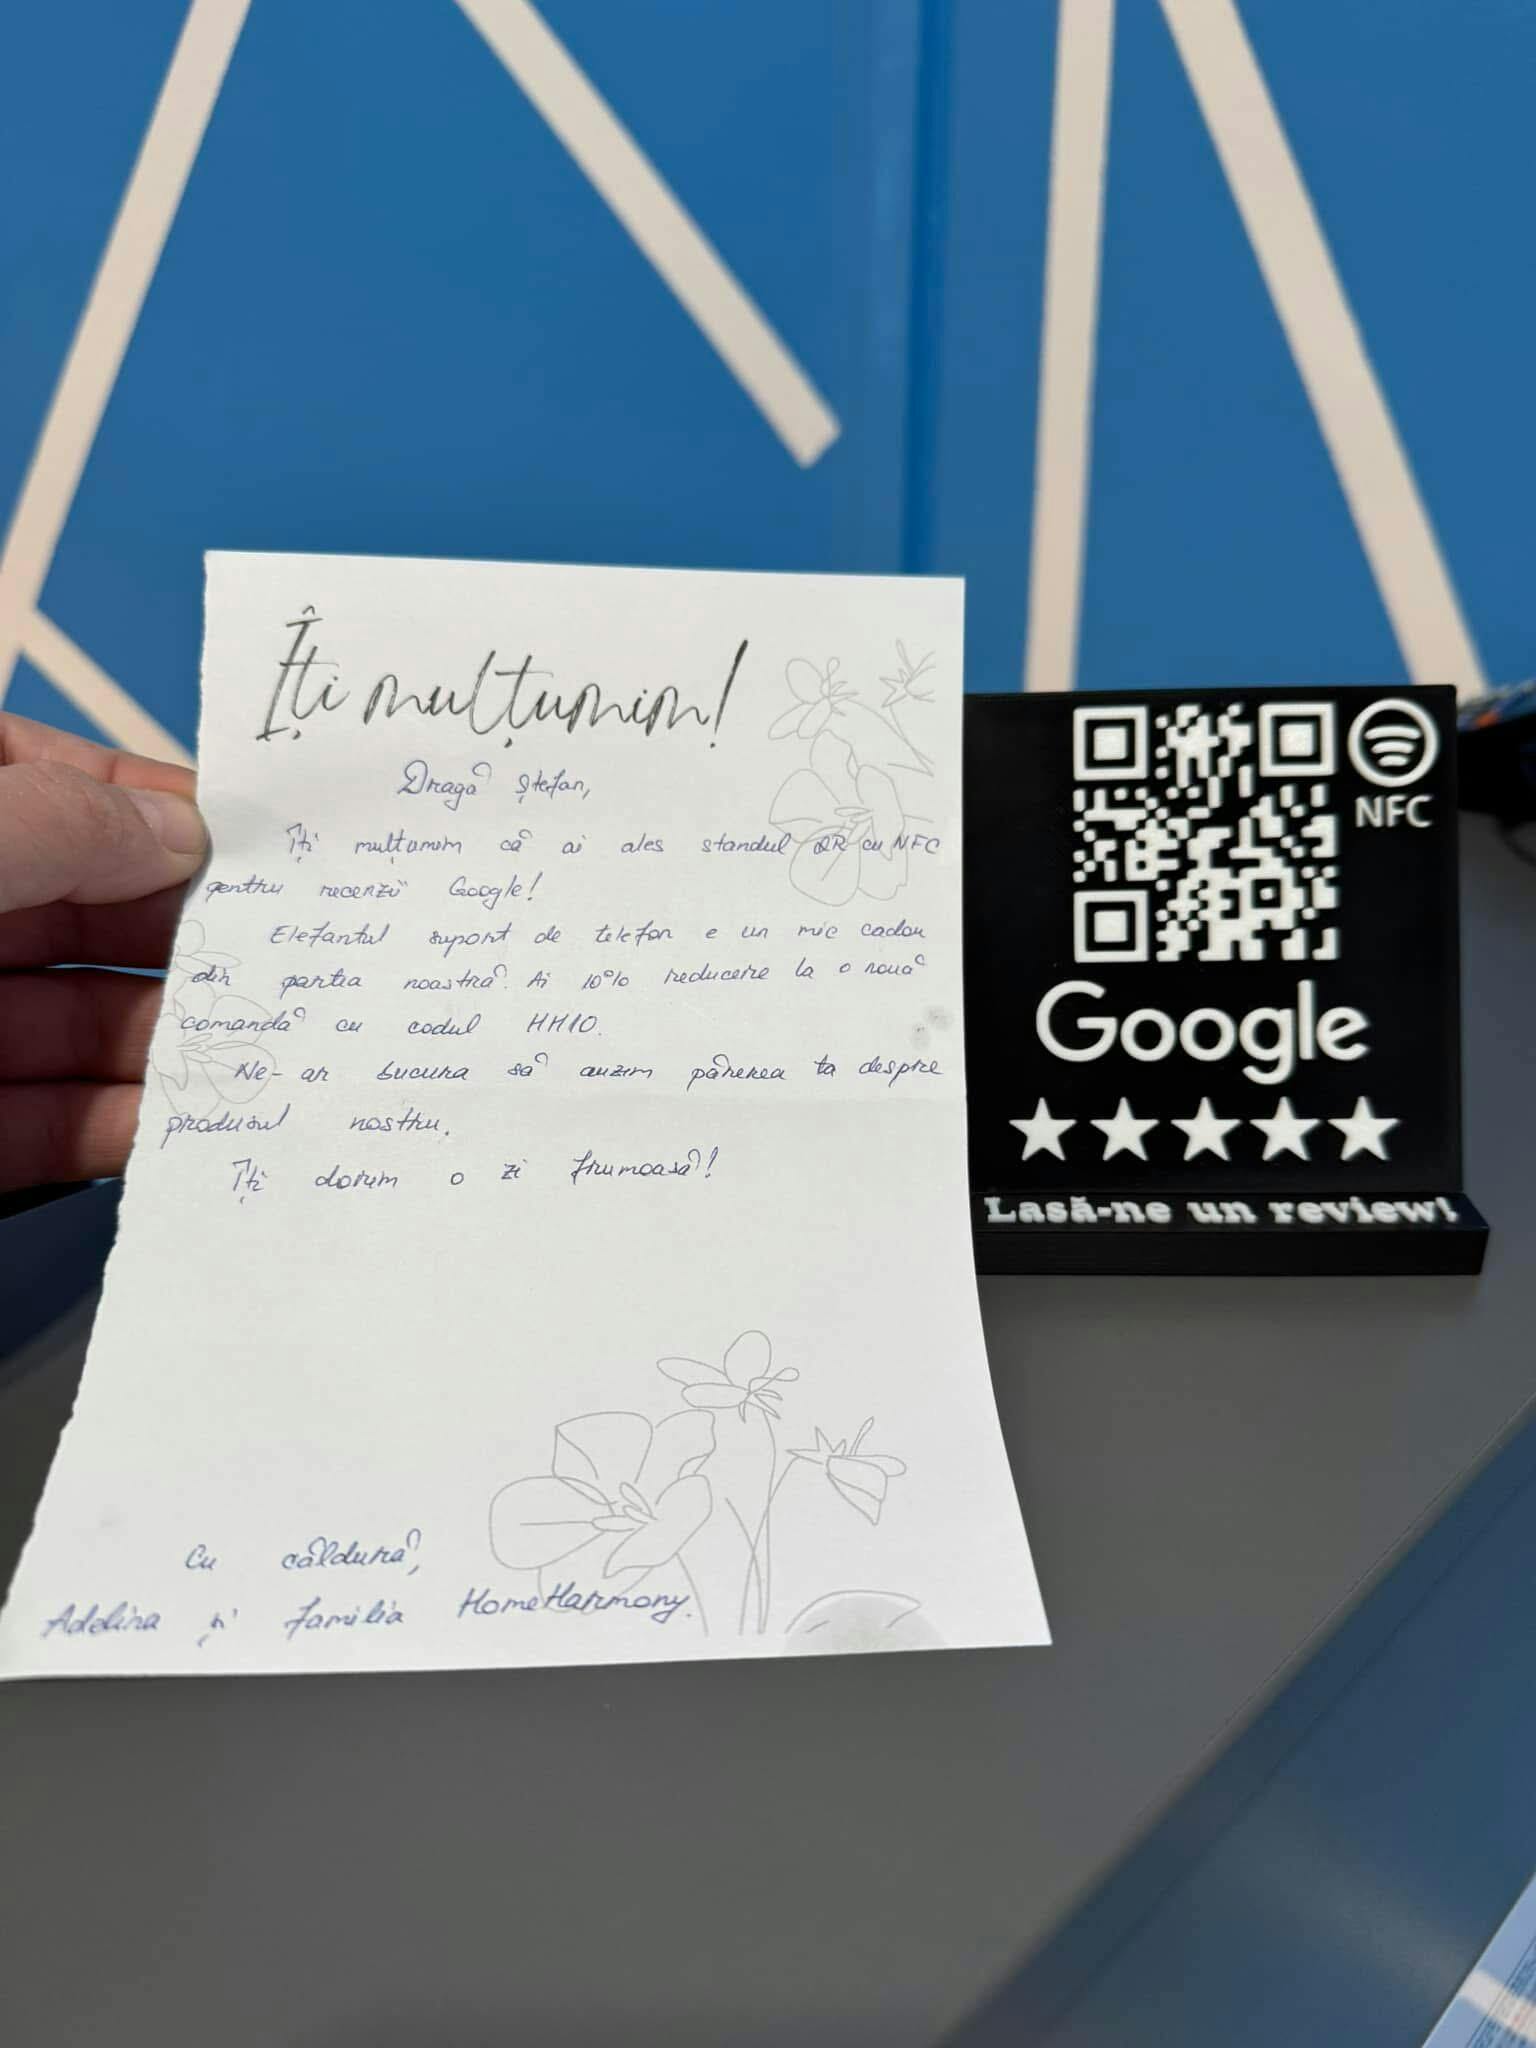 Îți mulțumim!
Dragă Ștefan,
Îți mulțumim că ai ales standul QR cu NFC
pentru recenzii Google!
Elefantul suport de telefon e un mic cadou
din partea noastră. Ai 10% reducere la o nouă
comandă cu codul HH10.
Ne-ar bucura să auzim părerea ta despre
produsul nostru.
Îți dorim o zi frumoasă!
Cu căldură,
Adelina și familia HomeHarmony.
NFC
Google
Lasă-ne un review!